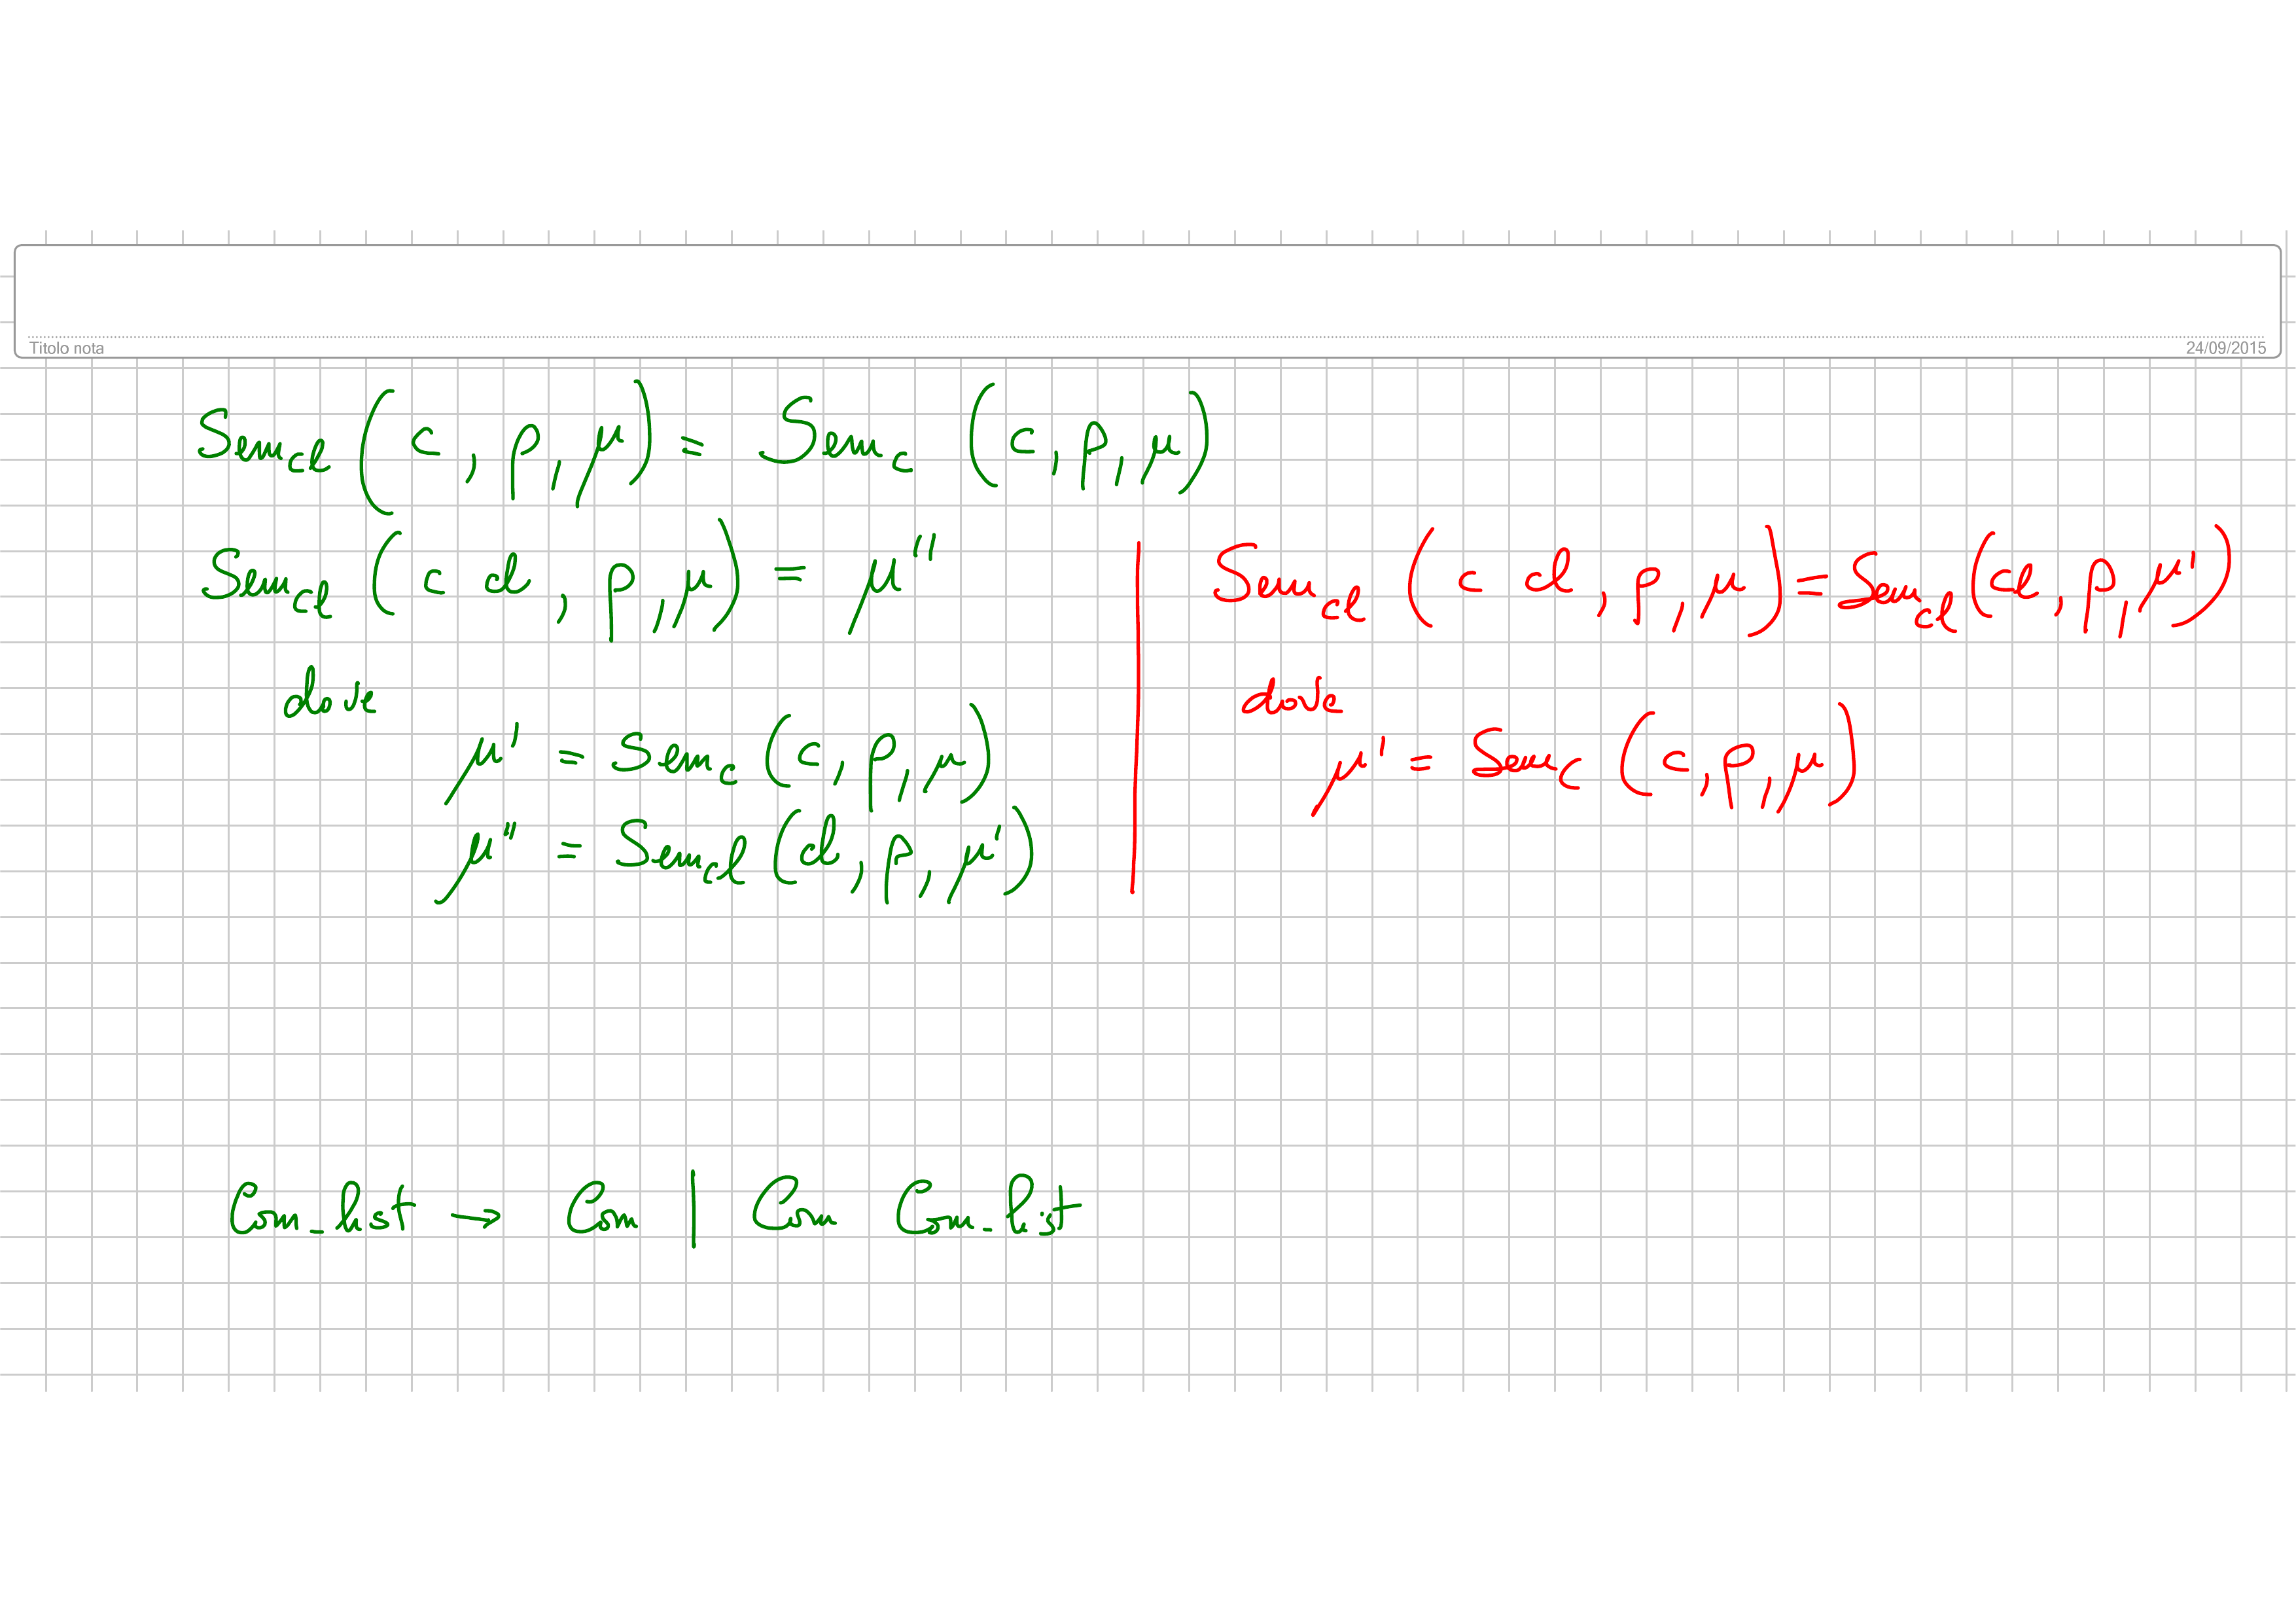 Titolo nota 24/09/2015
Sem_cl (c, ρ, μ) = Sem_c (c, ρ, μ)
Sem_cl (c cl, ρ, μ) = μ''
dove
μ' = Sem_c (c, ρ, μ)
μ'' = Sem_cl (cl, ρ, μ')
Sem_cl (c cl, ρ, μ) = Sem_cl (cl, ρ, μ')
dove
μ' = Sem_c (c, ρ, μ)
Com_list → Com | Com Com_list